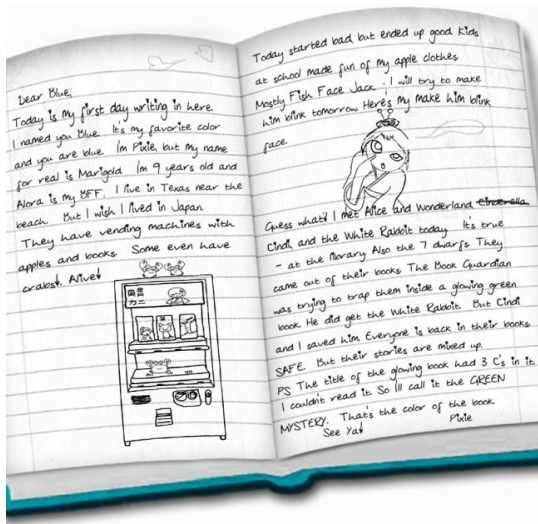 Dear Blue,
Today is my first day writing in here.
I named you Blue. It's my favorite color
and you are blue. I'm Pixie, but my name
for real is Marigold I'm 9 years old and
Alora is my BFF. I live in Texas near the
beach. But I wish I lived in Japan
They have vending machines with
apples and books. Some even have
crabs!. Alive!
カニ
Today started bad, but ended up good Kids
at school made fun of my apple clothes.
Mostly Fish Face Jack. I will try to make
him blink tomorrow Here's my make him blink
face.
Guess what? I met Alice and Wonderland Cinderella
Cindi, and the White Rabbit today. It's true
- at the library Also the 7 dwarfs They
came out of their books The Book Guardian
was trying to trap them inside a glowing green
book. He did get the White Rabbit. But Cindi
and I saved him Everyone is back in their books
SAFE. But their stories are mixed up.
PS The title of the glowing book had 3 C's in it.
I couldn't read it. So I'll call it the GREEN
MYSTERY. That's the color of the book
See Ya!
Pixie